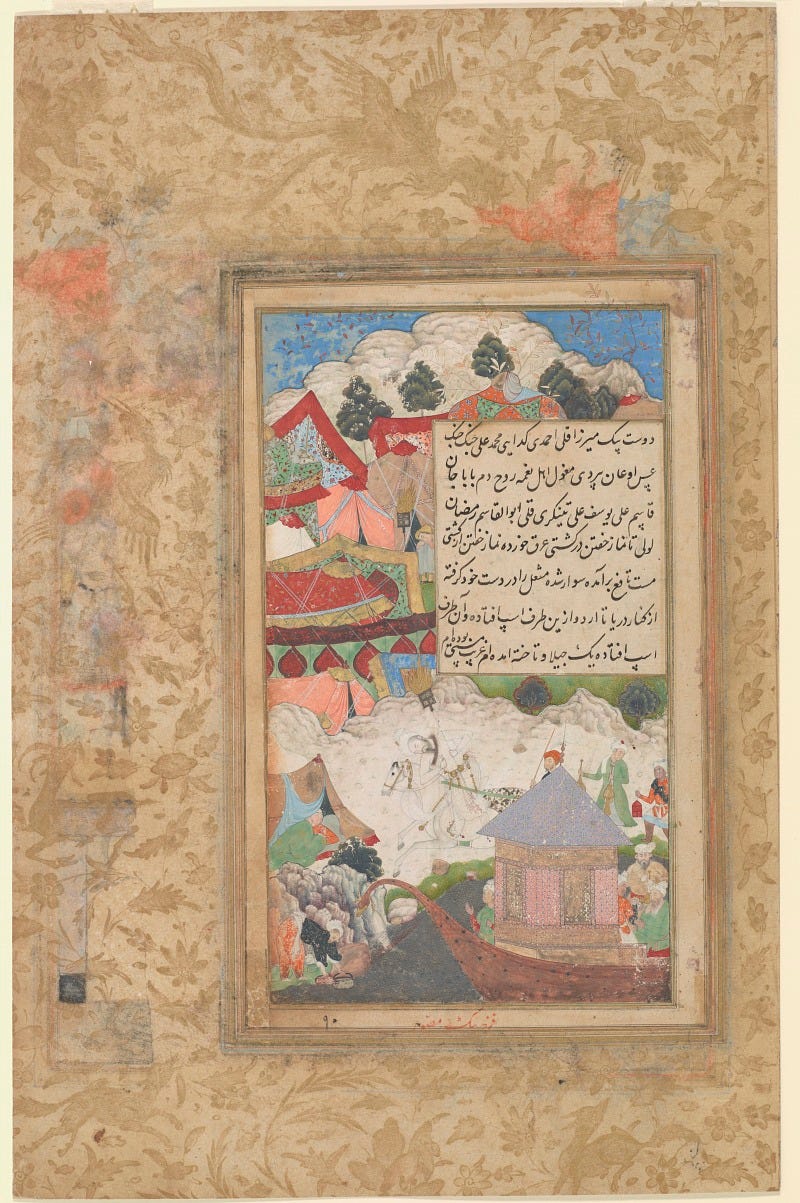 دوست بیک میرزا قلی احمدی کدایی محمد علی جنک جنک
اوغان بردی مغول اهل نغمه روح دم بابا جان
قاسم علی یوسف علی تینکری قلی ابوالقاسم رمضان
لولی تا نماز خفتن در کشتی عرق خورده نماز خفتن از کشتی
مست تافع برآمده سوار شده مشعل را در دست خود کرفته
از کنار دریا تا اردو ازین طرف اسپ افتاده و آن طرف
اسپ افتاده یک جیلاو تاخته آمده ام غریب مستی بوده ام
۹۰